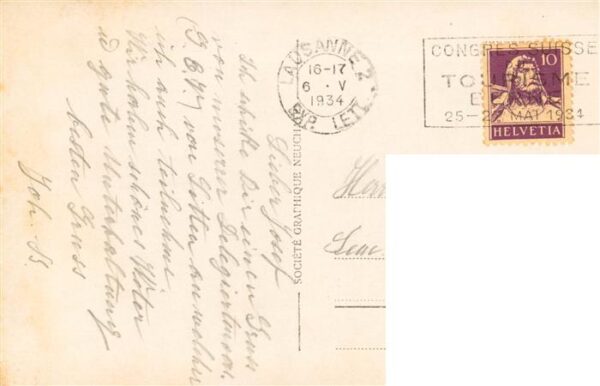 LAUSANNE 2
16-17
6 . V
1934
EXP. LETT.
CONGRES SUISSE
TOURISME
25-27 MAI 1934
10
HELVETIA
SOCIÉTÉ GRAPHIQUE NEUCH
Lieber Josef
Ich schicke Dir einen Gruss
von unserer
von
ich auch teilnehme.
Wir haben schönes Weter
u gute Unterhaltung
besten Gruss
Joh.
Herr